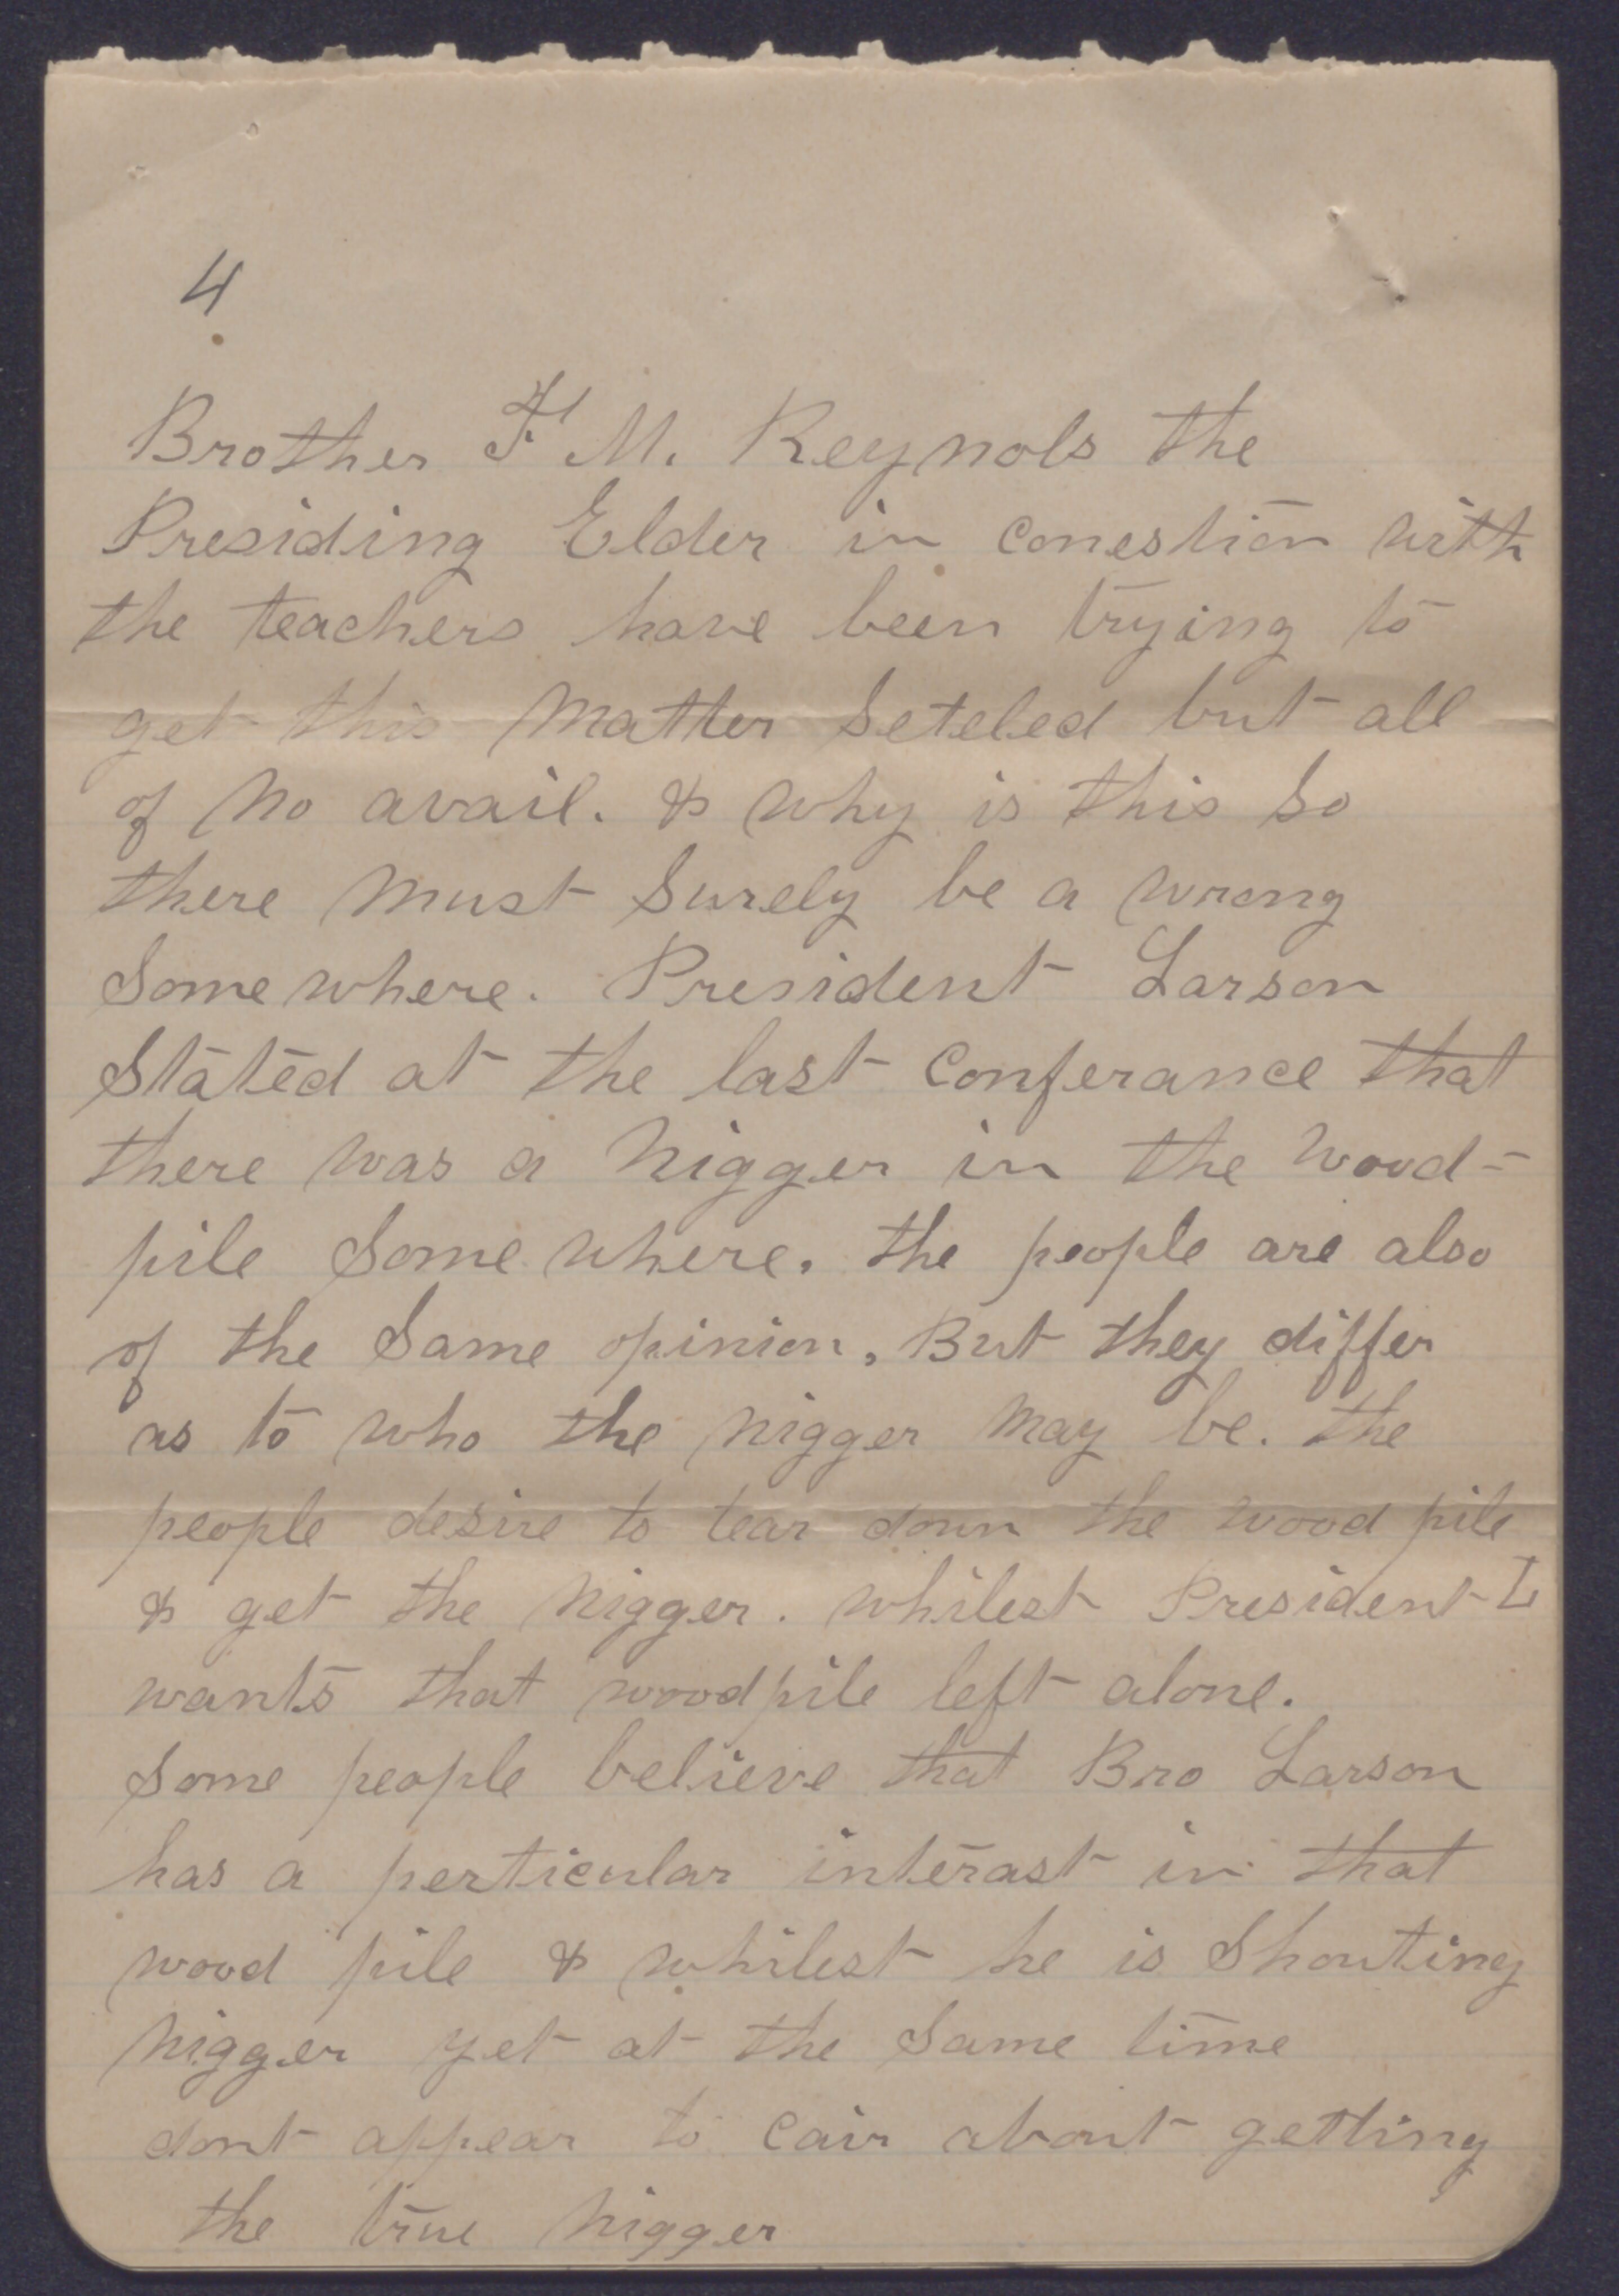 4
Brother F. M. Reynols the
Presiding Elder in conestion with
the teachers have been trying to
get this matter seteled but all
of no avail. & why is this so
there must surely be a wrong
some where. President Larson
stated at the last conferance that
there was a nigger in the wood-
pile some where. the people are also
of the same opinion, But they differ
as to who the nigger may be. the
people desire to tear down the wood pile
& get the nigger. whilest President L
wants that woodpile left alone.
some people believe that Bro Larson
has a perticular interast in that
wood pile & whilest he is shouting
nigger yet at the same time
dont appear to cair about getting
the true nigger